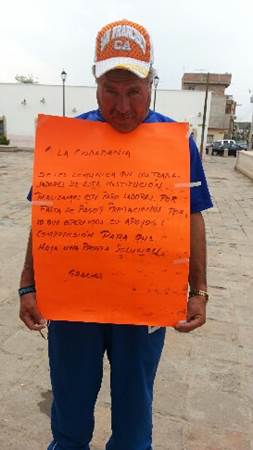 SAN FRANCISCO
CA
A LA CIUDADANIA
SE LES COMUNICA QUE LOS TRABA-
JADORES DE ESTA INSTITUCION
REALIZAMOS ESTE PARO LABORAL POR
FALTA DE PAGOS Y PRESTACIONES POR
LO QUE ESPERAMOS SU APOYO Y
COMPRENSIÓN PARA QUE
HAYA UNA PRONTA SOLUCION
GRACIAS